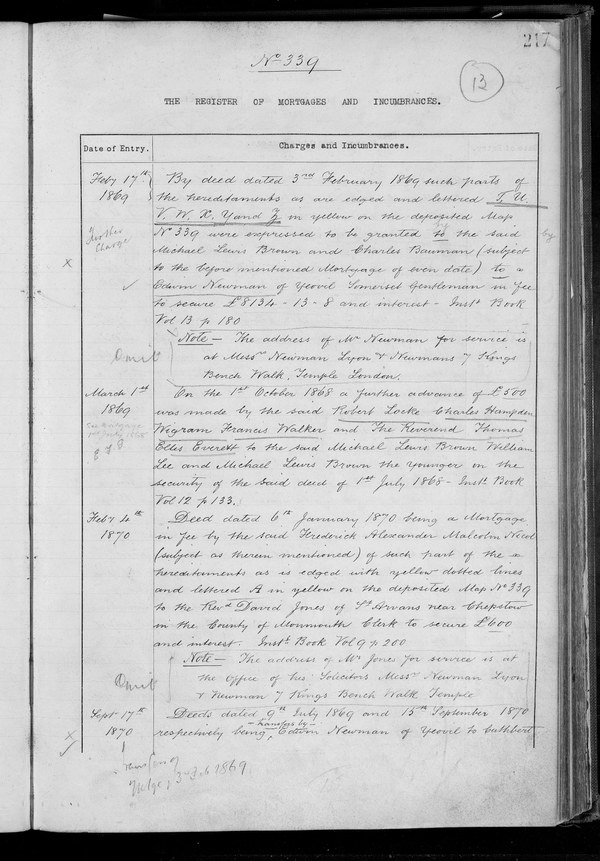 217
No 339
13
THE REGISTER OF MORTGAGES AND INCUMBRANCES.
Date of Entry.
Charges and Incumbrances.
Feby 17th
1869
By deed dated 3rd February 1869 such parts of
the hereditaments as are edged and lettered T. U.
V. W. X. Y and Z in yellow on the deposited Map
No 339 were expressed to be granted to the said
by
Michael Lewis Brown and Charles Bauman (subject
to the before mentioned Mortgage of even date) to a
Edwin Newman of Yeovil Somerset Gentleman in fee
to secure £8134-13-8 and interest - Inst. Book
Vol 13 p 180
Further
Charge
x
Omit
Note - The address of Mr Newman for service is
at Messrs Newman Lyon & Newmans 7 Kings
Bench Walk. Temple London.
March 1st
1869
On the 1st October 1868 a further advance of £500
was made by the said Robert Locke Charles Hampden
Wigram Francis Walker and The Reverend Thomas
Ellis Everett to the said Michael Lewis Brown William
Lee and Michael Lewis Brown the younger on the
security of the said deed of 1st July 1868 - Inst. Book
Vol 12 p 133.
Feby 4th
1870
Deed dated 6th January 1870 being a Mortgage
in fee by the said Frederick Alexander Malcolm Nicol
(subject as therein mentioned) of such part of the
hereditaments as is edged with yellow dotted lines
and lettered A in yellow on the deposited Map No 339
to the Revd David Jones of St Arvans near Chepstow
in the County of Monmouth Clerk to secure £600
and interest. Inst. Book Vol 9 p 200
Omit
Note - The address of Mr Jones for service is at
the Office of his Solicitors Messrs Newman Lyon
& Newman 7 Kings Bench Walk Temple
Sept 17th
1870
x
Deeds dated 9th July 1869 and 13th September 1870
- transfers by -
respectively being Edwin Newman of Yeovil to Cuthbert
Transfer of
Mtge, 3rd Feb 1869